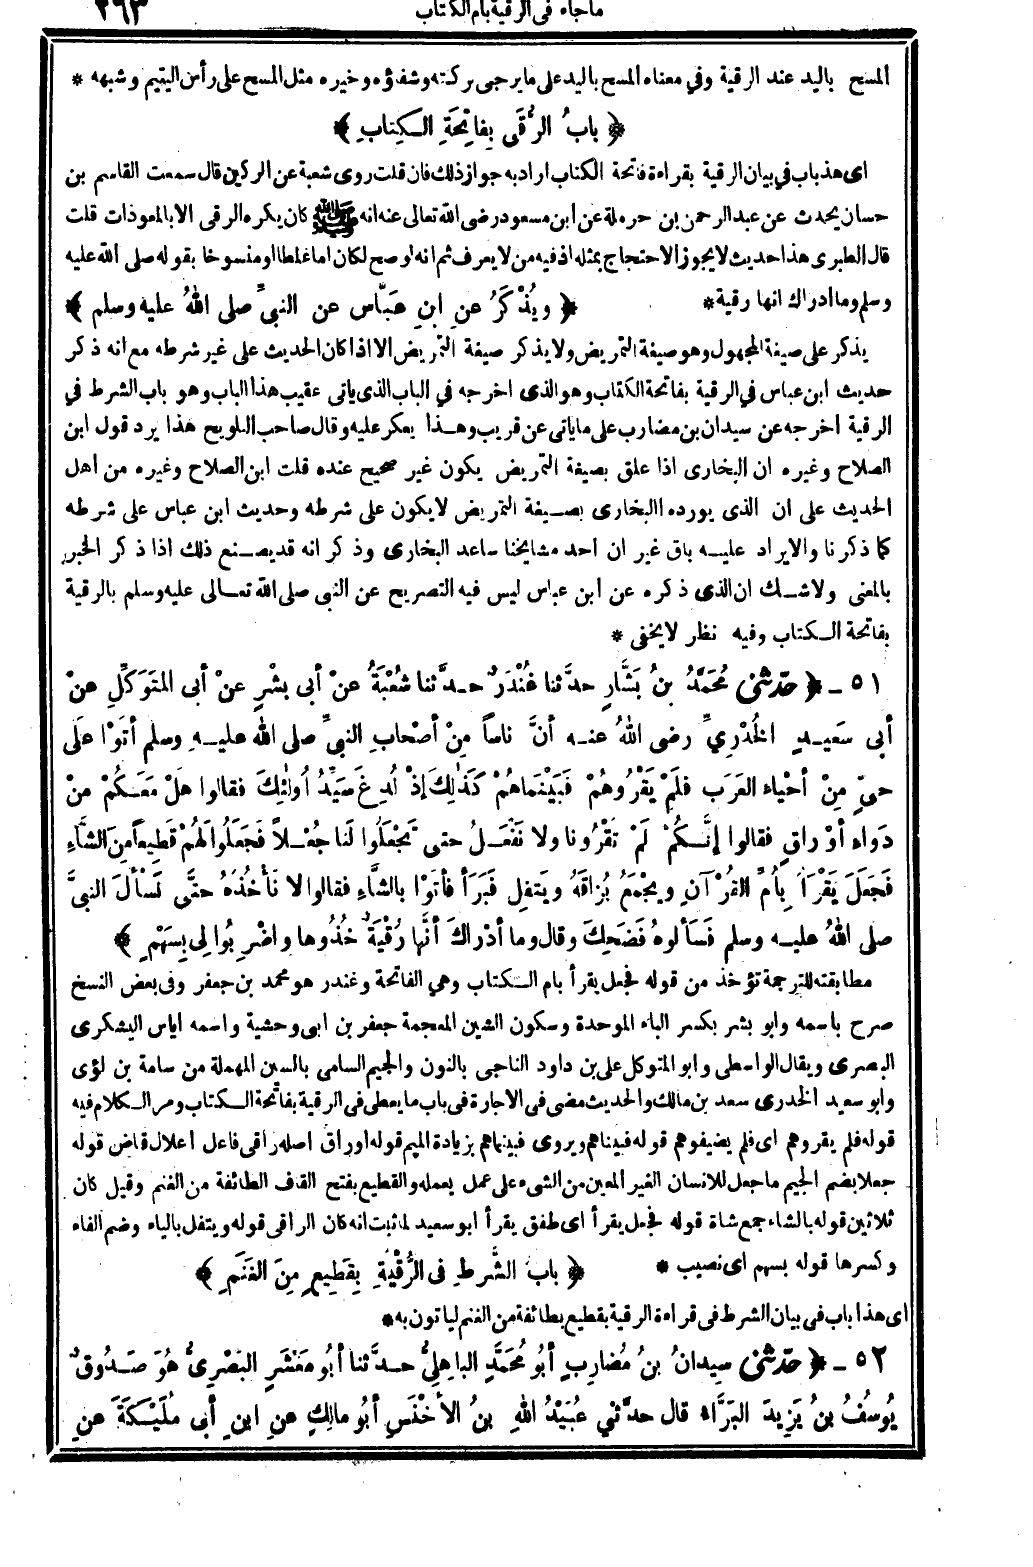 ماجاء في الرقية بام الكتاب
٢٦٣
المسح باليد عند الرقية وفي معناه المسح باليد على ما يرجى بركته وشفاؤه وخيره مثل المسح على رأس اليتيم وشبهه *
﴿ بابُ الرُّقَى بِفَاتِحَةِ الـكِتابِ ﴾
اى هذ باب في بيان الرقية بقراءة فاتحة الكتاب اراد به جواز ذلك فان قلت روى شعبة عن الركين قال سمعت القاسم بن
حسان يحدث عن عبد الرحمن بن حرملة عن ابن مسعود رضى الله تعالى عنه انه ﷺ كان يكره الرقى الا بالمعوذات قلت
قال الطبرى هذا حديث لا يجوز الاحتجاج بمثله اذ فيه من لا يعرف ثم انه لو صح لكان اما غلطا او منسوخا بقوله صلى الله عليه
وسلم وما أدراك انها رقية *
﴿ ويُذْكَرُ عنِ ابنِ عَبَّاس عن النبيِّ صلى اللهُ عليه وسلم ﴾
يذكر على صيغة المجهول وهو صيغة التمريض ولا يذكر صيغة التمريض الا اذا كان الحديث على غير شرطه مع انه ذكر
حديث ابن عباس في الرقية بفاتحة الكتاب وهو الذى اخرجه في الباب الذى ياتى عقيب هذا الباب وهو باب الشرط في
الرقية أخرجه عن سيدان بن مضارب على ما يأتى عن قريب وهـذا يعكر عليه وقال صاحب التلويح هذا يرد قول ابن
الصلاح وغيره ان البخارى اذا علق بصيغة التمريض يكون غير صحيح عنده قلت ابن الصلاح وغيره من اهل
الحديث على ان الذى يورده البخارى بصـيغة التمريض لا يكون على شرطه وحديث ابن عباس على شرطه
كما ذكرنا والايراد عليـه باق غير ان احد مشايخنا ساعد البخارى وذكر انه قد يصـنع ذلك اذا ذكر الخبر
بالمعنى ولا شـك ان الذى ذكره عن ابن عباس ليس فيه التصريح عن النبى صلى الله تعـالى عليه وسلم بالرقية
بفاتحة الـكتاب وفيه نظر لا يخفى *
٥١ ـ ﴿ حدّثنى مُحَمَّدُ بنُ بَشَّارٍ حدَّثنا غُنْدَرٌ حـدَّثنا شُعْبَةُ عنْ أبى بشْرٍ عنْ أبى المتَوَكِّلِ عنْ
أبى سَعِيـدٍ الخُدْرِيِّ رضى اللهُ عنـه أنَّ ناساً مِنْ أصْحابِ النبىِّ صلى الله عليـهِ وسلم أتَوْا عَلَى
حىٍّ مِنْ أحْياء العَرَب فلَمْ يَقْرُوهُمْ فَبَيْنَماهُمْ كَذَلِكَ إذْ لُدِغَ سَيِّدُ أُولئِكَ فقالوا هَلْ مَعَـكُمْ مِنْ
دَواء أوْ راقٍ فقالوا إنَّـكُمْ لَمْ تَقْرُونا ولا نَفْعَـلُ حتى تَجْعَلُوا لَنا جُعْـلاً فَجَعَلُوا لهُمْ قَطِيعاً مِنَ الشَّاءِ
فَجَعَلَ يَقْرَأُ بِأُمِّ القُرْآنِ ويَجْمَعُ بُزَاقَهُ ويَتفلِ فَبَرَأ فأتَوْا بالشَّاءِ فقالوا لا نَأْخُذُهُ حتَّى نَسْألَ النبىَّ
صلى اللهُ عليـه وسلم فَسَألوهُ فَضَحِكَ وقال وما أدْراكَ أنَّها رُقْيَةٌ خُذُوها واضْرِبُوا لِى بِسَهْمٍ ﴾
مطابقته للترجمة تؤخذ من قوله فجعل يقرأ بام الـكتاب وهي الفاتحة وغندر هو محمد بن جعفر وفى بعض النسخ
صرح باسمه وابو بشر بكسر الباء الموحدة وسكون الشين المعجمة جعفر بن ابى وحشية واسمه اياس اليشكرى
البصرى ويقال الواسطى وابو المتوكل على بن داود الناجى بالنون والجيم السامى بالسين المهملة من سامة بن لؤى
وابو سعيد الخدرى سعد بن مالك والحديث مضى فى الاجارة فى باب ما يعطى فى الرقية بفاتحة الـكتاب ومر الـكلام فيه
قوله فلم يقروهم اى فلم يضيفوهم قوله فبيناهم ويروى فبينماهم بزيادة الميم قوله او راق اصله راقى فاعل اعلال قاض قوله
جعلا بضم الجيم ما جعل للانسان الغير المعين من الشىء على عمل يعمله والقطيع بفتح القاف الطائفة من الغنم وقيل كان
ثلاثين قوله بالشاء جمع شاة قوله فجعل يقرأ اى طفق يقرأ ابو سعيد لما ثبت انه كان الراقى قوله ويتفل بالياء وضم الفاء
وكسرها قوله بسهم اى نصيب *
﴿ بابُ الشَّرطِ فى الرُّقْيَةِ بِقَطِيعٍ مِنَ الغَنَمِ ﴾
اى هذا باب فى بيان الشرط فى قراءة الرقية بقطيع بطائفة من الغنم لياتون به *
٥٢ ـ ﴿ حدّثنى سِيدانُ بنُ مُضاربٍ أبُو مُحَمَّدٍ الباهِلىُّ حـدَّثنا أبُو مَعْشَرٍ البَصْرِىُّ هُوَ صَـدُوقٌ
يُوسُفُ بنُ يَزِيدَ البَرَّاء قال حدَّثني عُبَيْدُ اللهِ بنُ الأخْنَسِ أبُو مالِكٍ عنِ ابنِ أبى مُلَيْـكَةَ عنِ